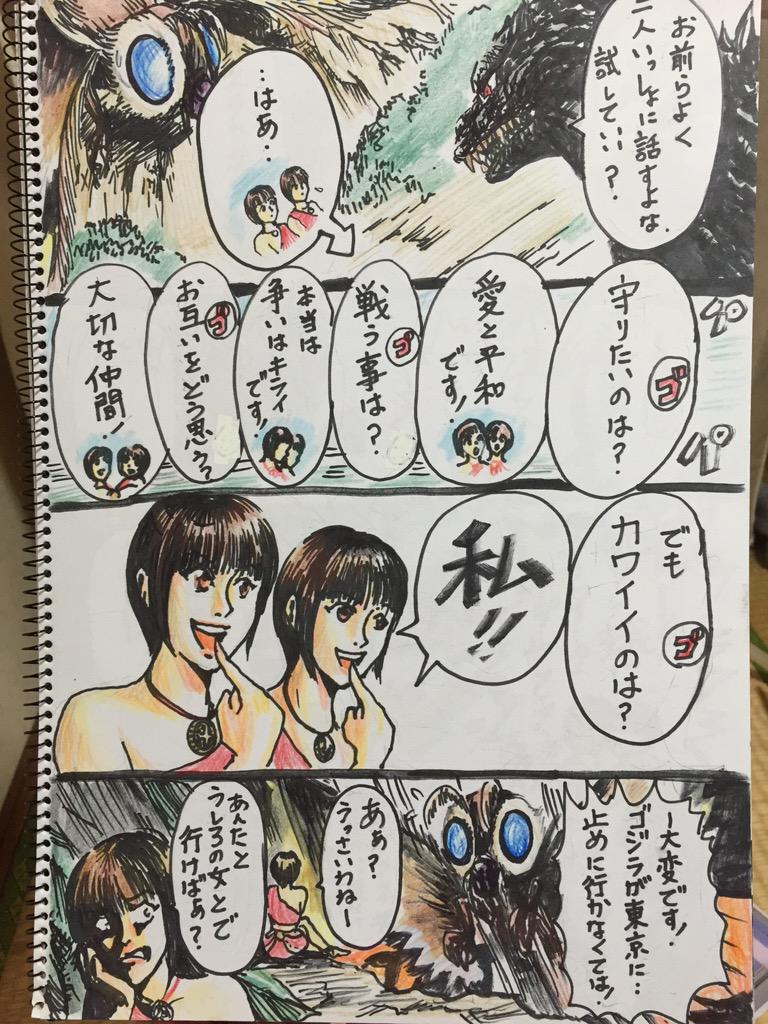 お前らよく
二人いっしょに話すよな.
試していい？
…はあ…
守りたいのは？
ゴ
愛と平和
です！
戦う事は？
ゴ
本当は
争いはキライ
です！
お互いをどう思う？
ゴ
大切な仲間！
でも
カワイイのは？
ゴ
私!!
大変です！
ゴジラが東京に…
止めに行かなくては！
あぁ？
うっさいわねー
あんたと
うしろの女とで
行けばぁ？